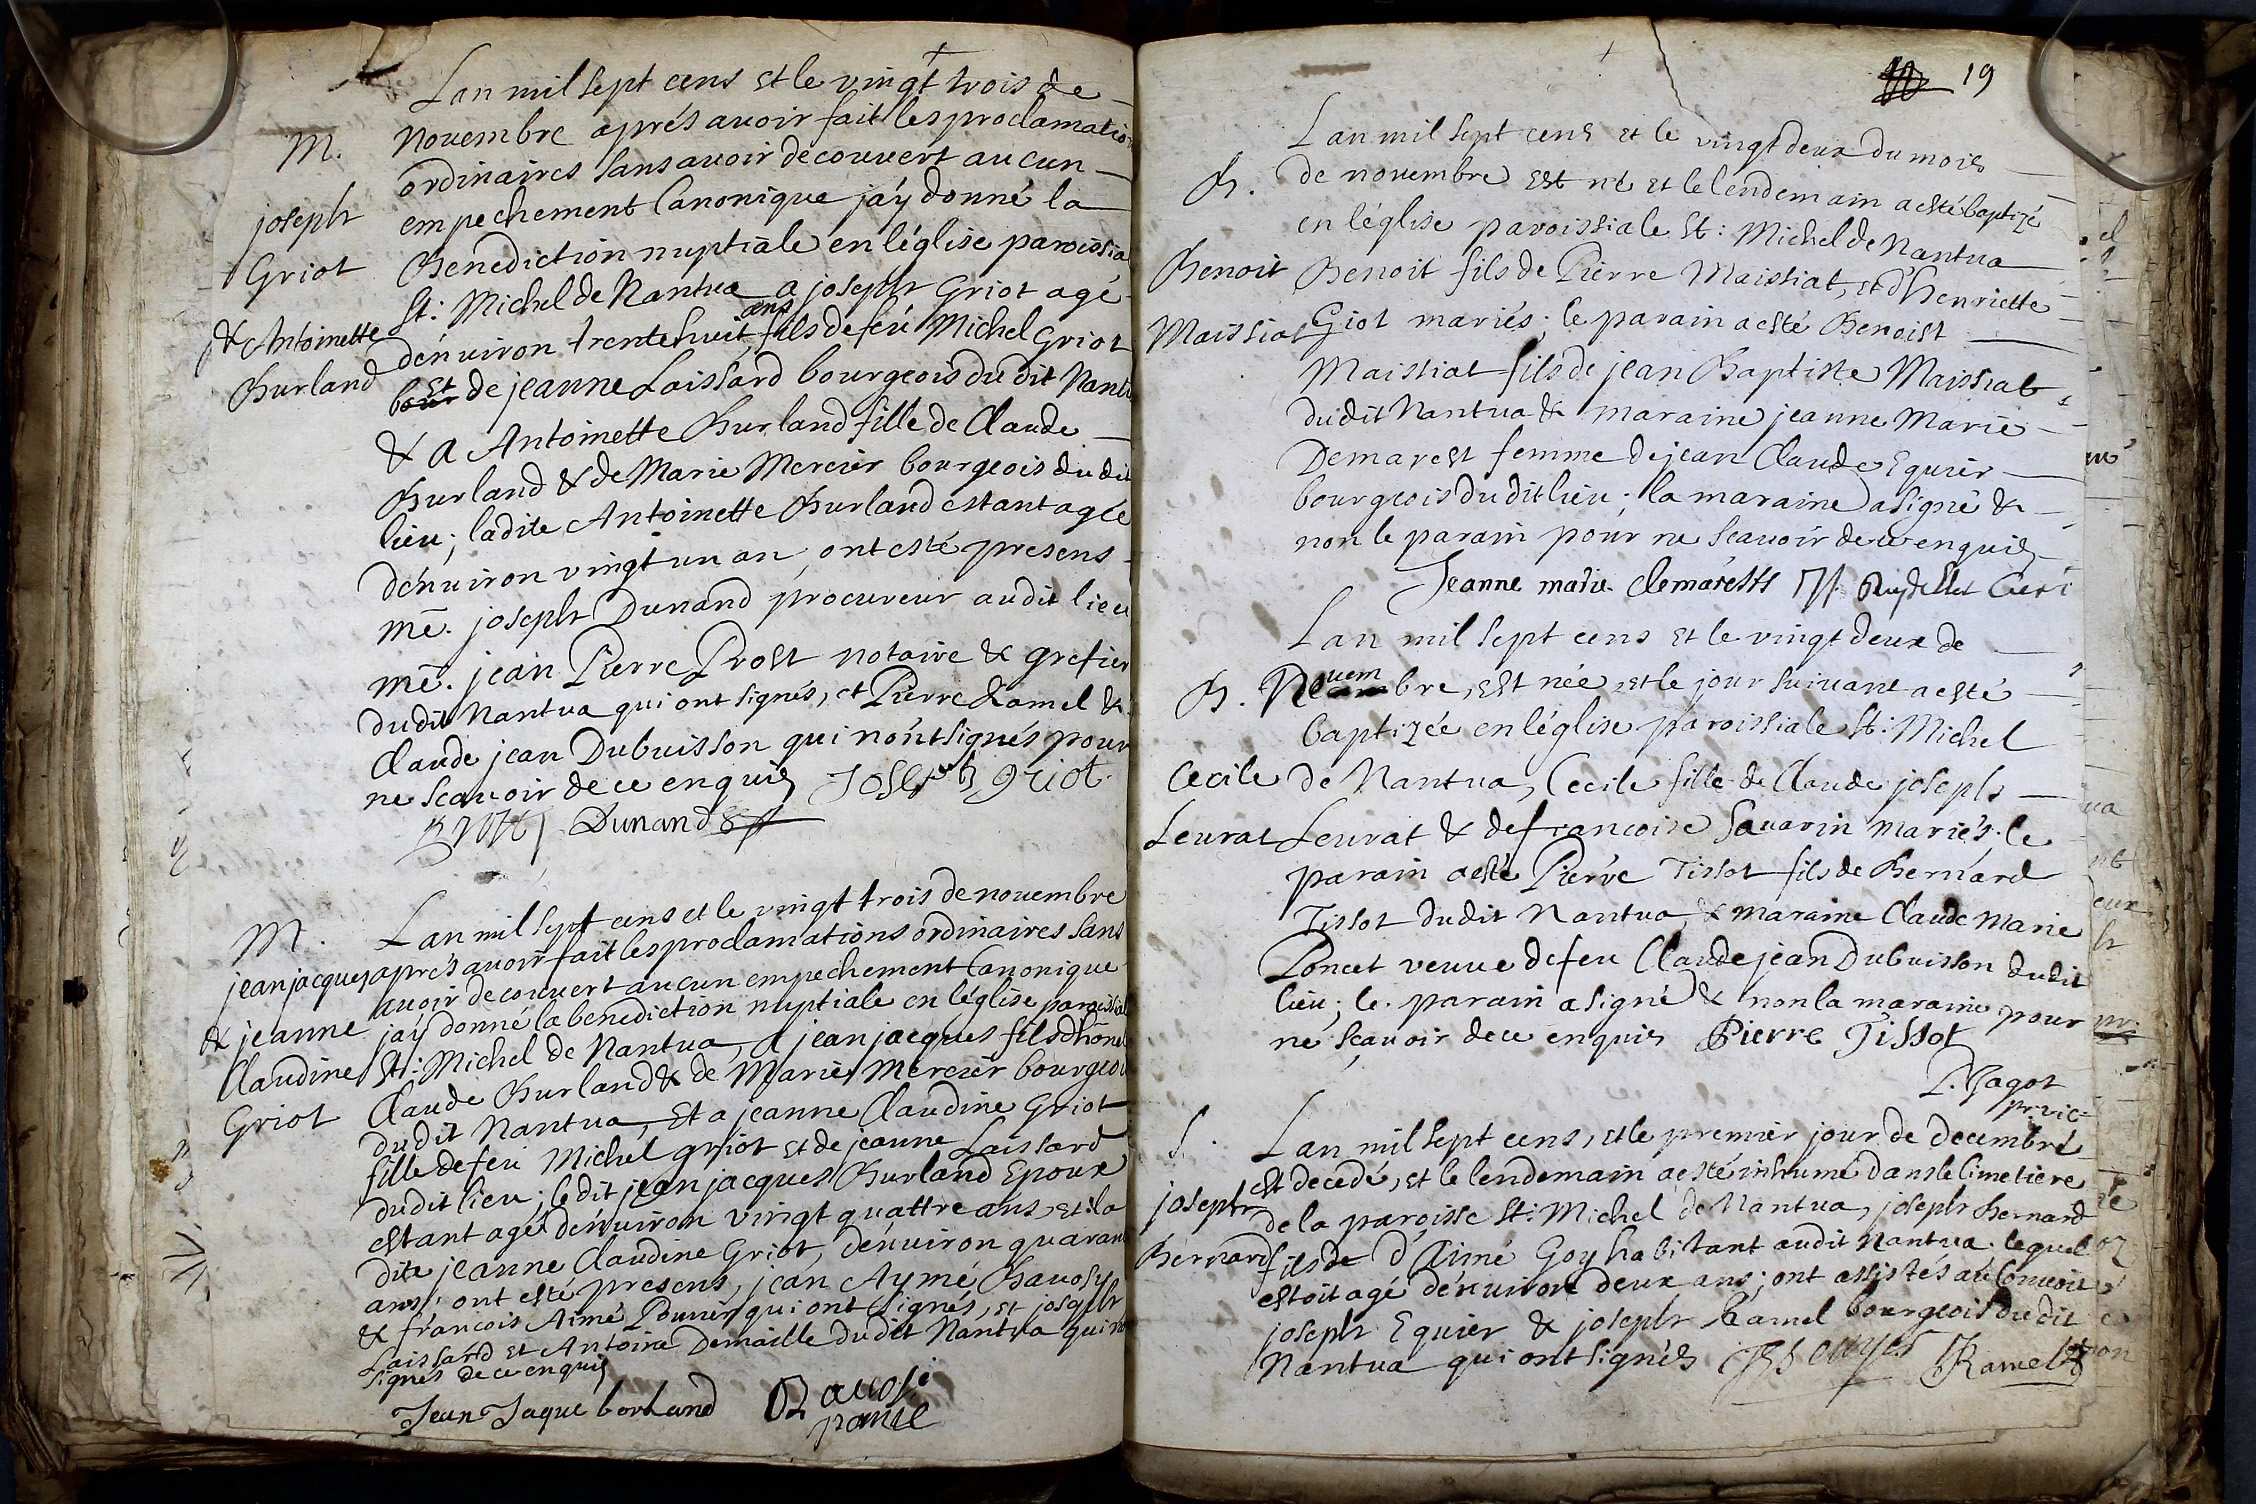 Lan mil sept cens et le vingt trois de
M. Novembre aprés avoir fait les proclamatio
ordinaires sans avoir decouvert aucun
joseph empechement Canonique jaÿ donné la
Griot Benediction nuptiale en léglise paroissia
St: Michel de Nantua a joseph Griot agé
& Antoinette dénuiron trente huit ans fils de feu Michel Griot
Burland bour et de jeanne Laissard bourgeois du dit Nantu
& a Antoinette Burland fille de Claude
Burland & de Marie Mercier bourgeois du dit
lieu; ladite Antoinette Burland estant agée
dénuiron vingt un an, ont esté presens
me. joseph Dunand procureur audit lieu
me. jean Pierre Prost notaire & grefier
dudit Nantua qui ont signés, et Pierre Ramel &
Claude jean Dubuisson qui nónt signés pour
ne scavoir de ce enquis Joseph griot
Prost Dunand
M. Lan mil sept cens et le vingt trois de novembre
jean jacques aprés avoir fait les proclamations ordinaires sans
avoir decouvert aucun empechement Canonique
& jeanne jaÿ donné la benediction nuptiale en léglise paroissial
Claudine St: Michel de Nantua, a jean jacques fils dhone
Griot Claude Burland & de Marie Mercier bourgeoi
dudit Nantua, Et a jeanne Claudine Griot
fille de feu Michel griot et de jeanne Laissard
dudit lieu; le dit jean jacques Burland Epoux
estant agé dénuiron vingt quattre ans, et la
dite jeanne Claudine Griot, dénuiron quaran
ans; ont esté presens, jean Aymé Bavosy
& francois Aimé qui ont signés, et joseph
Laissard et Antoine Demaille dudit Nantua qui n
signés de ce enquis
Jean Jaque borland Bavosi

19
Lan mil sept cens et le vingt deux du mois
B. de novembre est né et le lendemain a esté baptizé
en léglise paroissiale St: Michel de Nantua
Benoit Benoit fils de Pierre Maissiat, et d'henriette
Maissiat Giot mariés; le parain a esté Benoist
Maissiat fils de jean Baptiste Maissiat
dudit Nantua & maraine jeanne Marie
Demarest femme de jean Claude Equier
bourgeois du dit lieu; la maraine a signé &
non le parain pour ne scavoir de ce enquis
Jeanne marie demarests Curé
Lan mil sept cens et le vingt deux de
B. Novembre, est née, et le jour suivant a esté
baptizée en léglise paroissiale St: Michel
Cecile de Nantua, Cecile fille de Claude joseph
Leurat Leurat & de francoise Savarin mariés; le
parain a esté Pierre Tissot fils de Bernard
Tissot dudit Nantua, & maraine Claude Marie
Poncet veuve de feu Claude jean Dubuisson dudit
lieu; le parain a signé & non la maraine pour
ne scavoir de ce enquis Pierre Tissot
P. Jagot
pr. vic:
S. Lan mil sept cens, et le premier jour de decembre
est decedé, et le lendemain a esté inhumé dans le Cimetiere
joseph de la paroisse St: Michel de Nantua, joseph bernard
Bernard fils de d'Aimé Goy habitant audit Nantua lequel
estoit agé dénuiron deux ans; ont assistés au Convoie
joseph Equier & joseph Ramel bourgeois du dit
Nantua qui ont signés Ramel